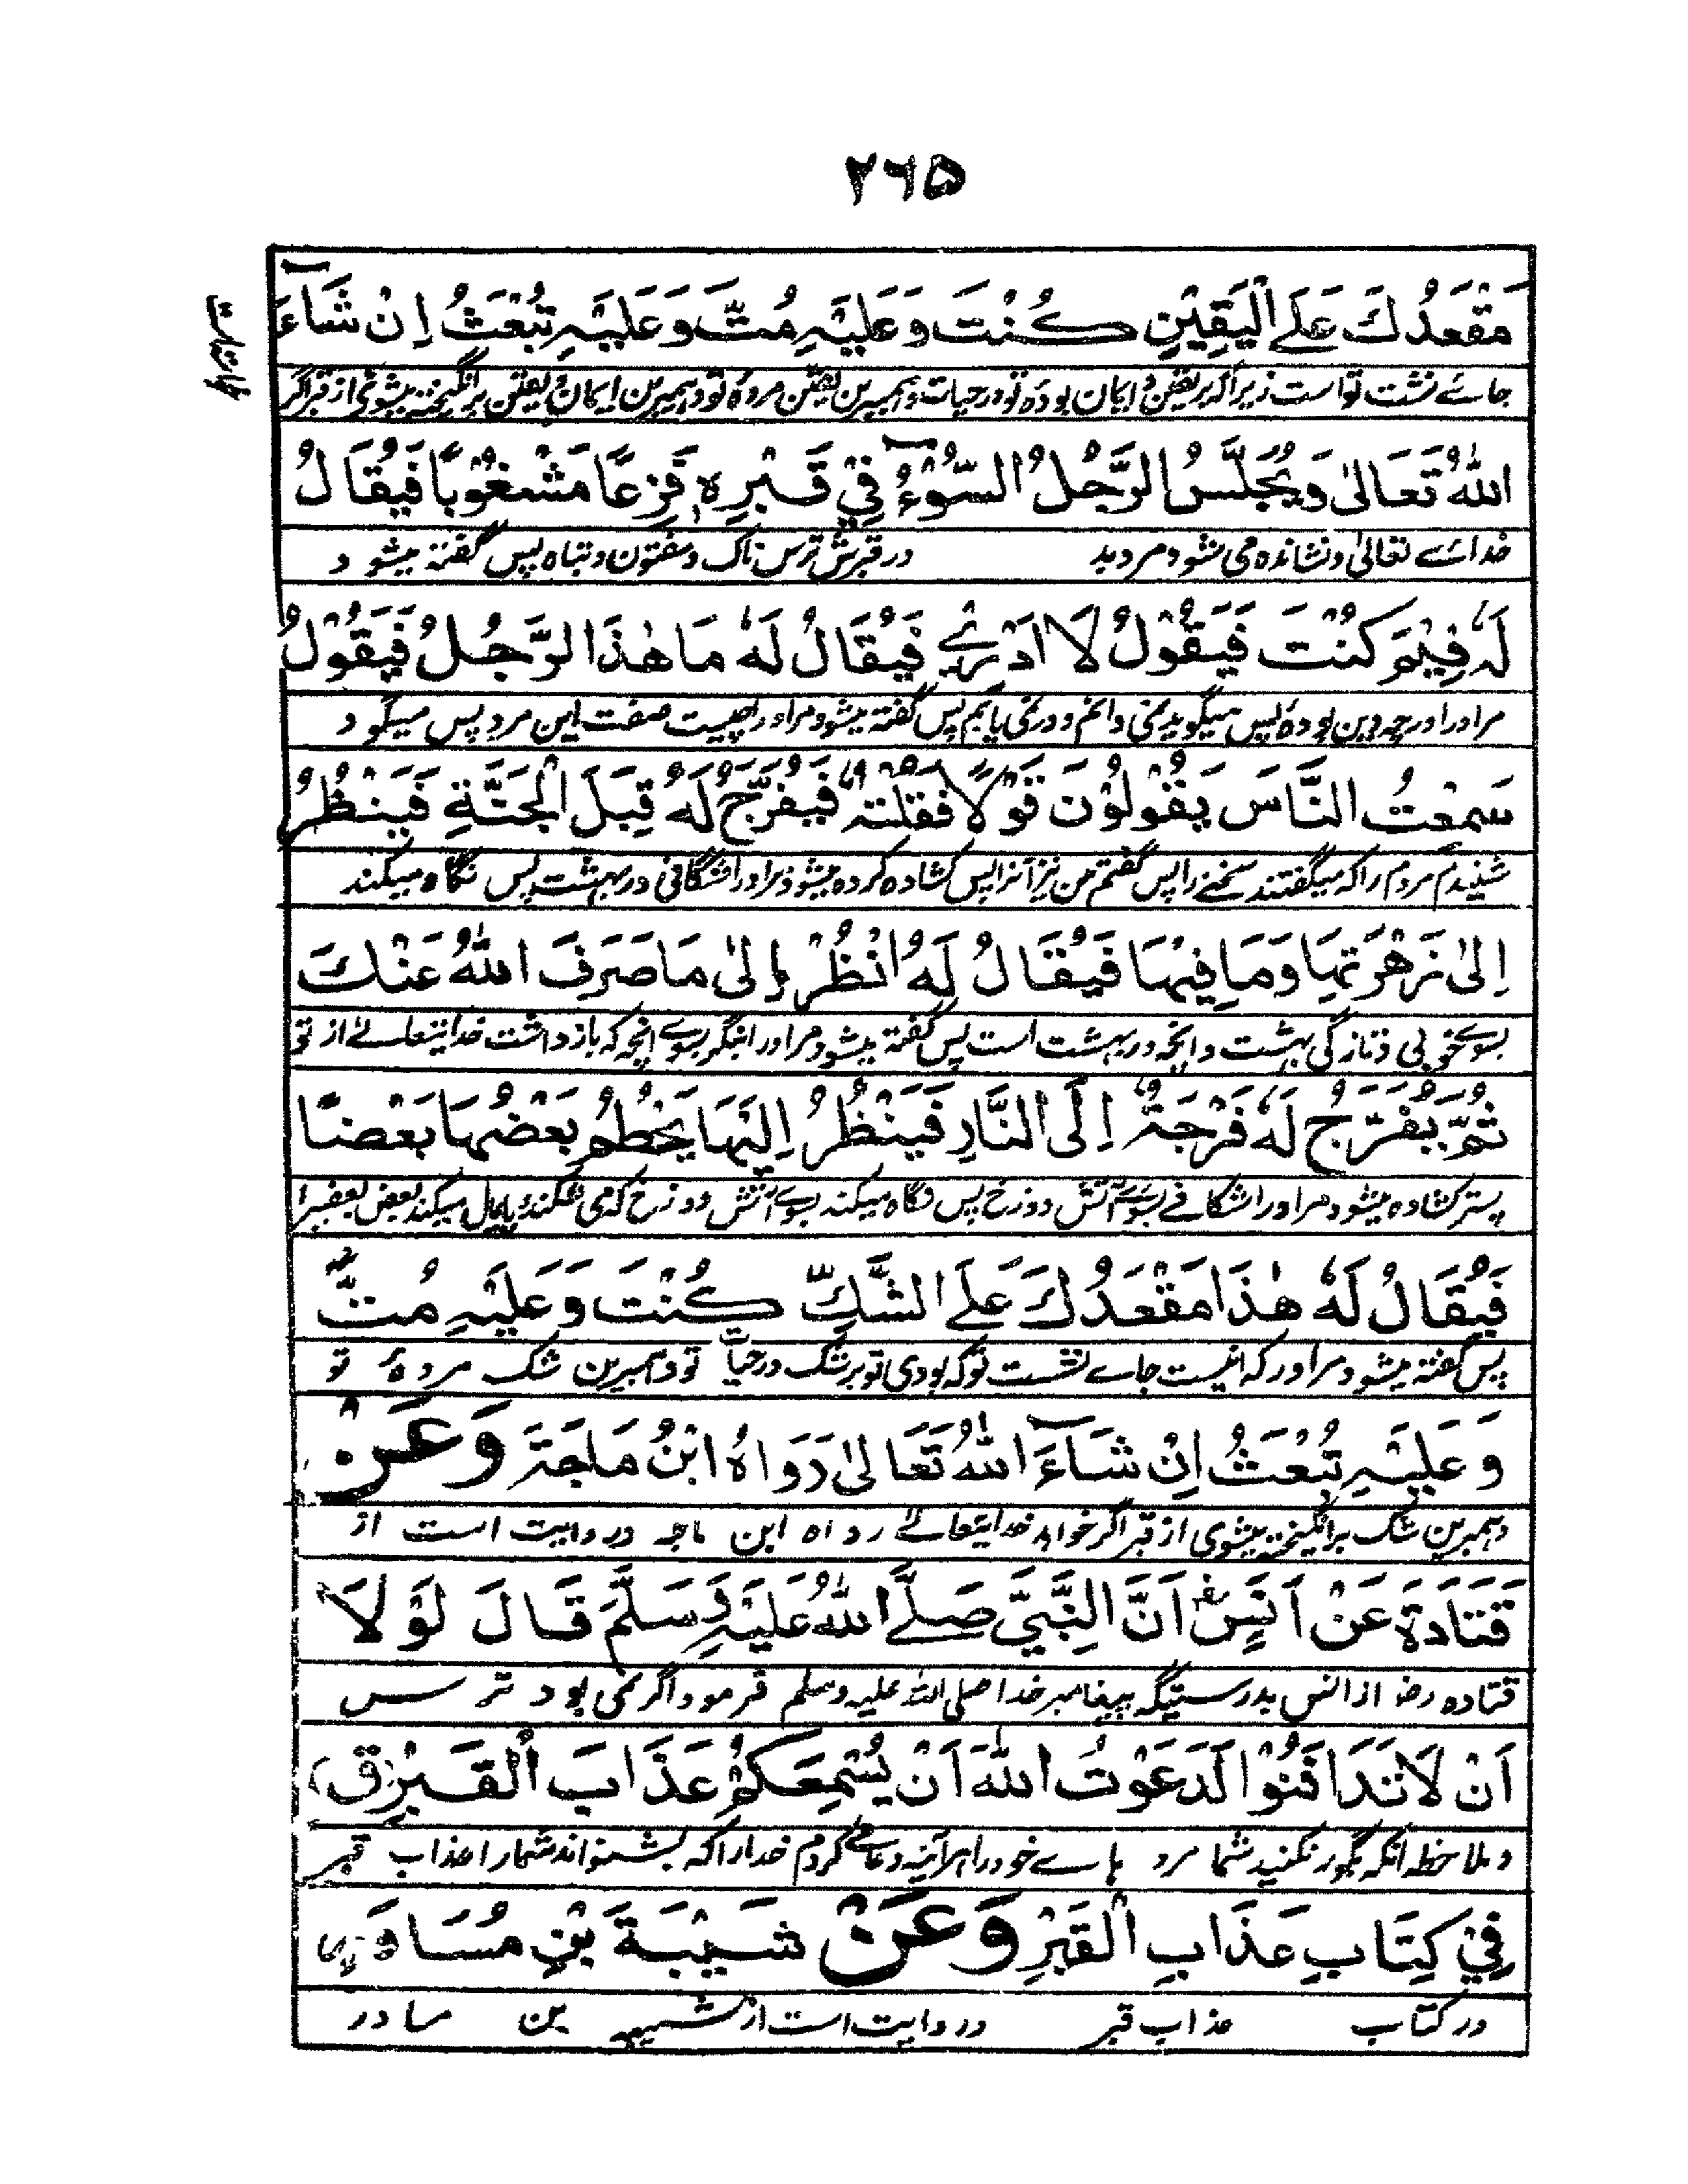 ۲۶۵
مَقْعَدُكَ عَلَے الْيَقِيْنِ كُنْتَ وَعَلَيْهِ مُتَّ وَعَلَيْهِ تُبْعَثُ اِنْ شَآءَ
جائے نشست تو است زیرا کہ بر یقین و ایمان بودۂ تو در حیات و ہمبرین یقین مردۂ تو و ہمبرین ایمان و یقین برانگیختہ میشوی از قبر اگر
اللّٰهُ تَعَالٰى وَيُجْلَسُ الرَّجُلُ السُّوْٓءُ فِيْ قَبْرِهٖ فَزِعًا مَشْغُوْبًا فَيُقَالُ
خدائے تعالیٰ و نشاندہ می شود مرد بد در قبرش ترس ناک و مفتون و تباہ پس گفتہ میشود
لَهٗ فِيْمَ كُنْتَ فَيَقُوْلُ لَا اَدْرِيْ فَيُقَالُ لَهٗ مَا هٰذَا الرَّجُلُ فَيَقُوْلُ
مر اورا در چہ دین بودۂ پس میگوید نمی دانم و در نمی یابم پس گفتہ میشود مر اورا چیست صفت این مرد پس میگود
سَمِعْتُ النَّاسَ يَقُوْلُوْنَ قَوْلًا فَقُلْتُهٗ فَيُفَرَّجُ لَهٗ قِبَلَ الْجَنَّةِ فَيَنْظُرُ
شنیدم مردم را کہ میگفتند سخنے را پس گفتم من نیز آنرا پس کشادہ کردہ میشود مر اورا شگافی در بہشت پس نگاہ میکند
اِلٰى زَهْرَتِهَا وَمَا فِيْهَا فَيُقَالُ لَهُ انْظُرْ اِلٰى مَا صَرَفَ اللّٰهُ عَنْكَ
بسوئے خوبی و تازگی بہشت و انچہ در بہشت است پس گفتہ میشود مر اورا بنگر بسوے انچہ کہ باز داشت خدایتعالے از تو
ثُمَّ يُفَرَّجُ لَهٗ فَرْجَةٌ اِلَى النَّارِ فَيَنْظُرُ اِلَيْهَا يَحْطِمُ بَعْضُهَا بَعْضًا
پستر کشادہ میشود مر اورا شگافے بسوے آتش دوزخ پس نگاہ میکند بسوے آتش دوزخ کہ می شکند و پایمال میکند بعض بعضیرا
فَيُقَالُ لَهٗ هٰذَا مَقْعَدُكَ عَلَے الشَّكِّ كُنْتَ وَعَلَيْهِ مُتَّ
پس گفتہ میشود مر اورا کہ اینست جاے نشست تو کہ بودی تو بر شک در حیات تو و ہمبرین شک مردۂ تو
وَعَلَيْهِ تُبْعَثُ اِنْ شَآءَ اللّٰهُ تَعَالٰى رَوَاهُ ابْنُ مَاجَةَ وَعَنْ
و ہمبرین شک برانگیختہ میشوی از قبر اگر خواہد خدایتعالے رواہ ابن ماجہ و روایت است از
قَتَادَةَ عَنْ اَنَسٍ اَنَّ النَّبِيَّ صَلَّے اللّٰهُ عَلَيْهِ وَسَلَّمَ قَالَ لَوْ لَا
قتادہ رضہ از انس بدرستیکہ پیغامبر خدا صلی اللہ علیہ وسلم فرمود اگر نمی بود ترس
اَنْ لَا تَدَافَنُوْا لَدَعَوْتُ اللّٰهَ اَنْ يُسْمِعَكُمْ عَذَابَ الْقَبْرِ (ق)
و ملاحظہ انکہ بگور نکنید شما مرد ہاے خود را ہر آئینہ دعا می کردم خدا را کہ بشنواند شما را عذاب قبر
فِيْ كِتَابِ عَذَابِ الْقَبْرِ وَعَنْ شَيْبَةَ بْنِ مُسَاوِرٍ
در کتاب عذاب قبر و روایت است از شیبہ بن مساور